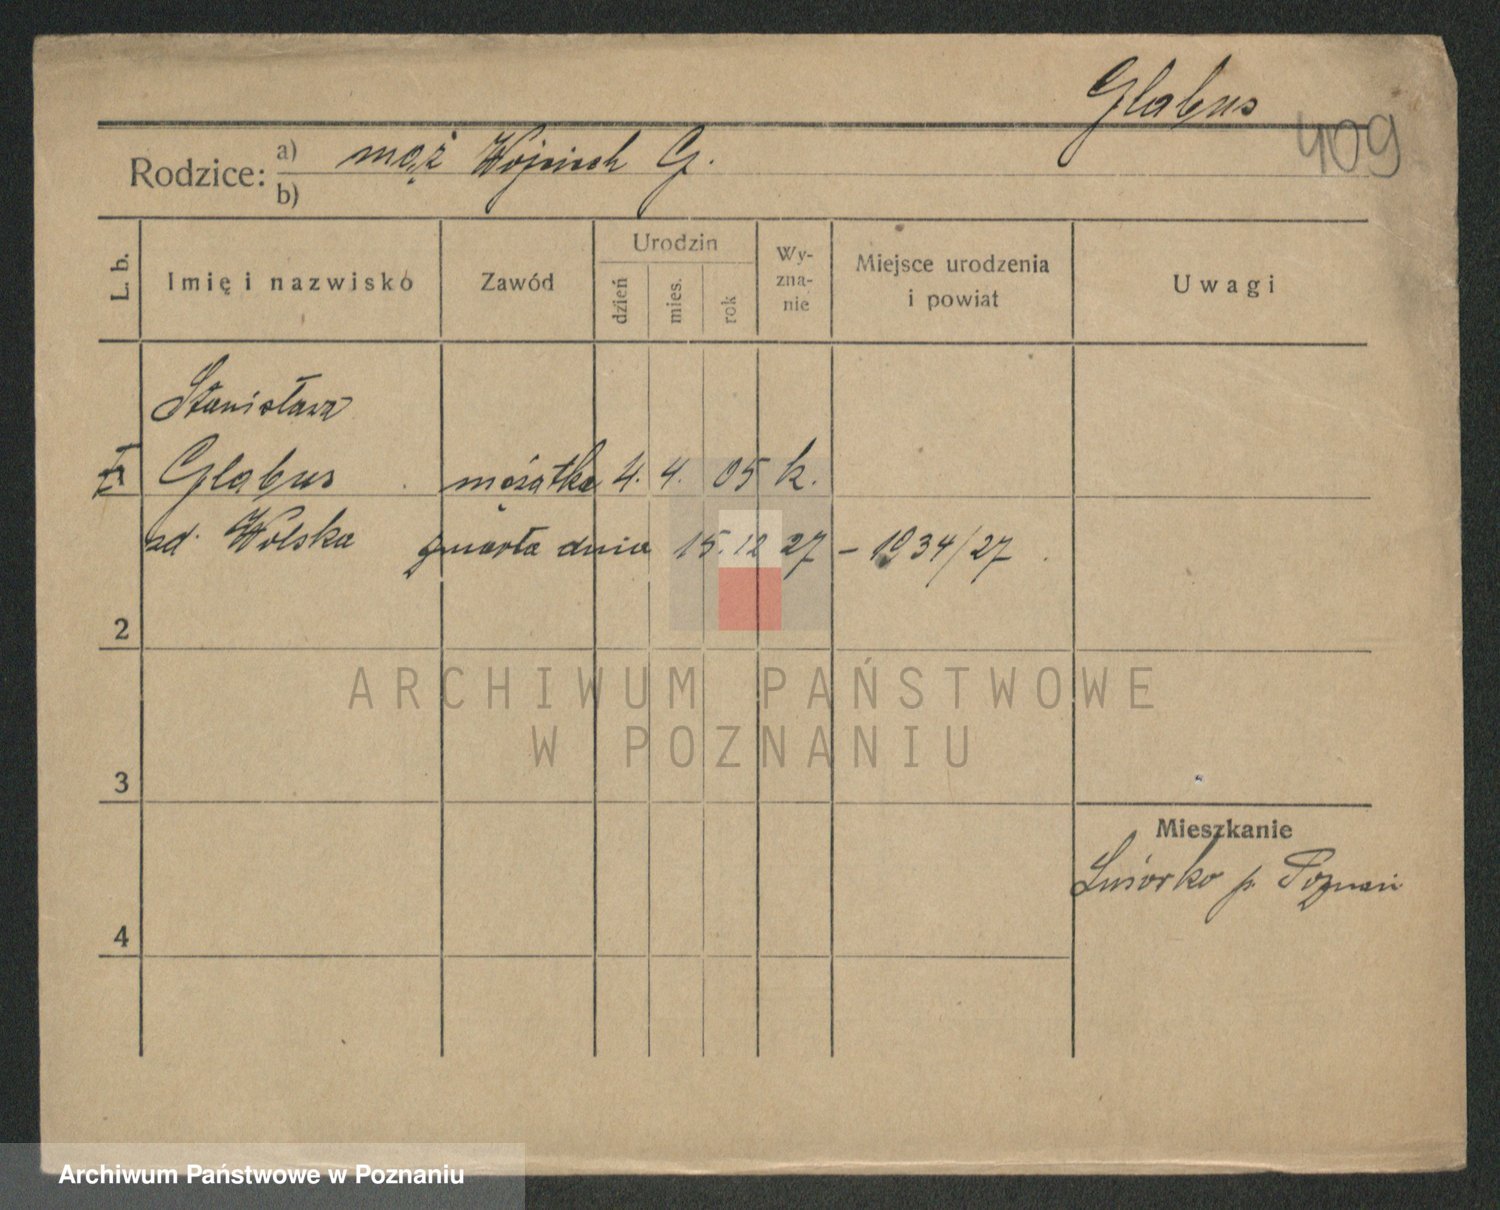 Glabus
409
Rodzice: a) mąż Wojciech G.
b)
L. b.
Imię i nazwisko
Zawód
Urodzin
dzień
mies.
rok
Wy-
zna-
nie
Miejsce urodzenia
i powiat
Uwagi
Stanisława
Glabus mężatka 4. 4. 05 k.
zd. Wolska zmarła dnia 15.12 27 - 1934/27
2
3
4
Mieszkanie
p. Poznań
ARCHIWUM PAŃSTWOWE
W POZNANIU
Archiwum Państwowe w Poznaniu